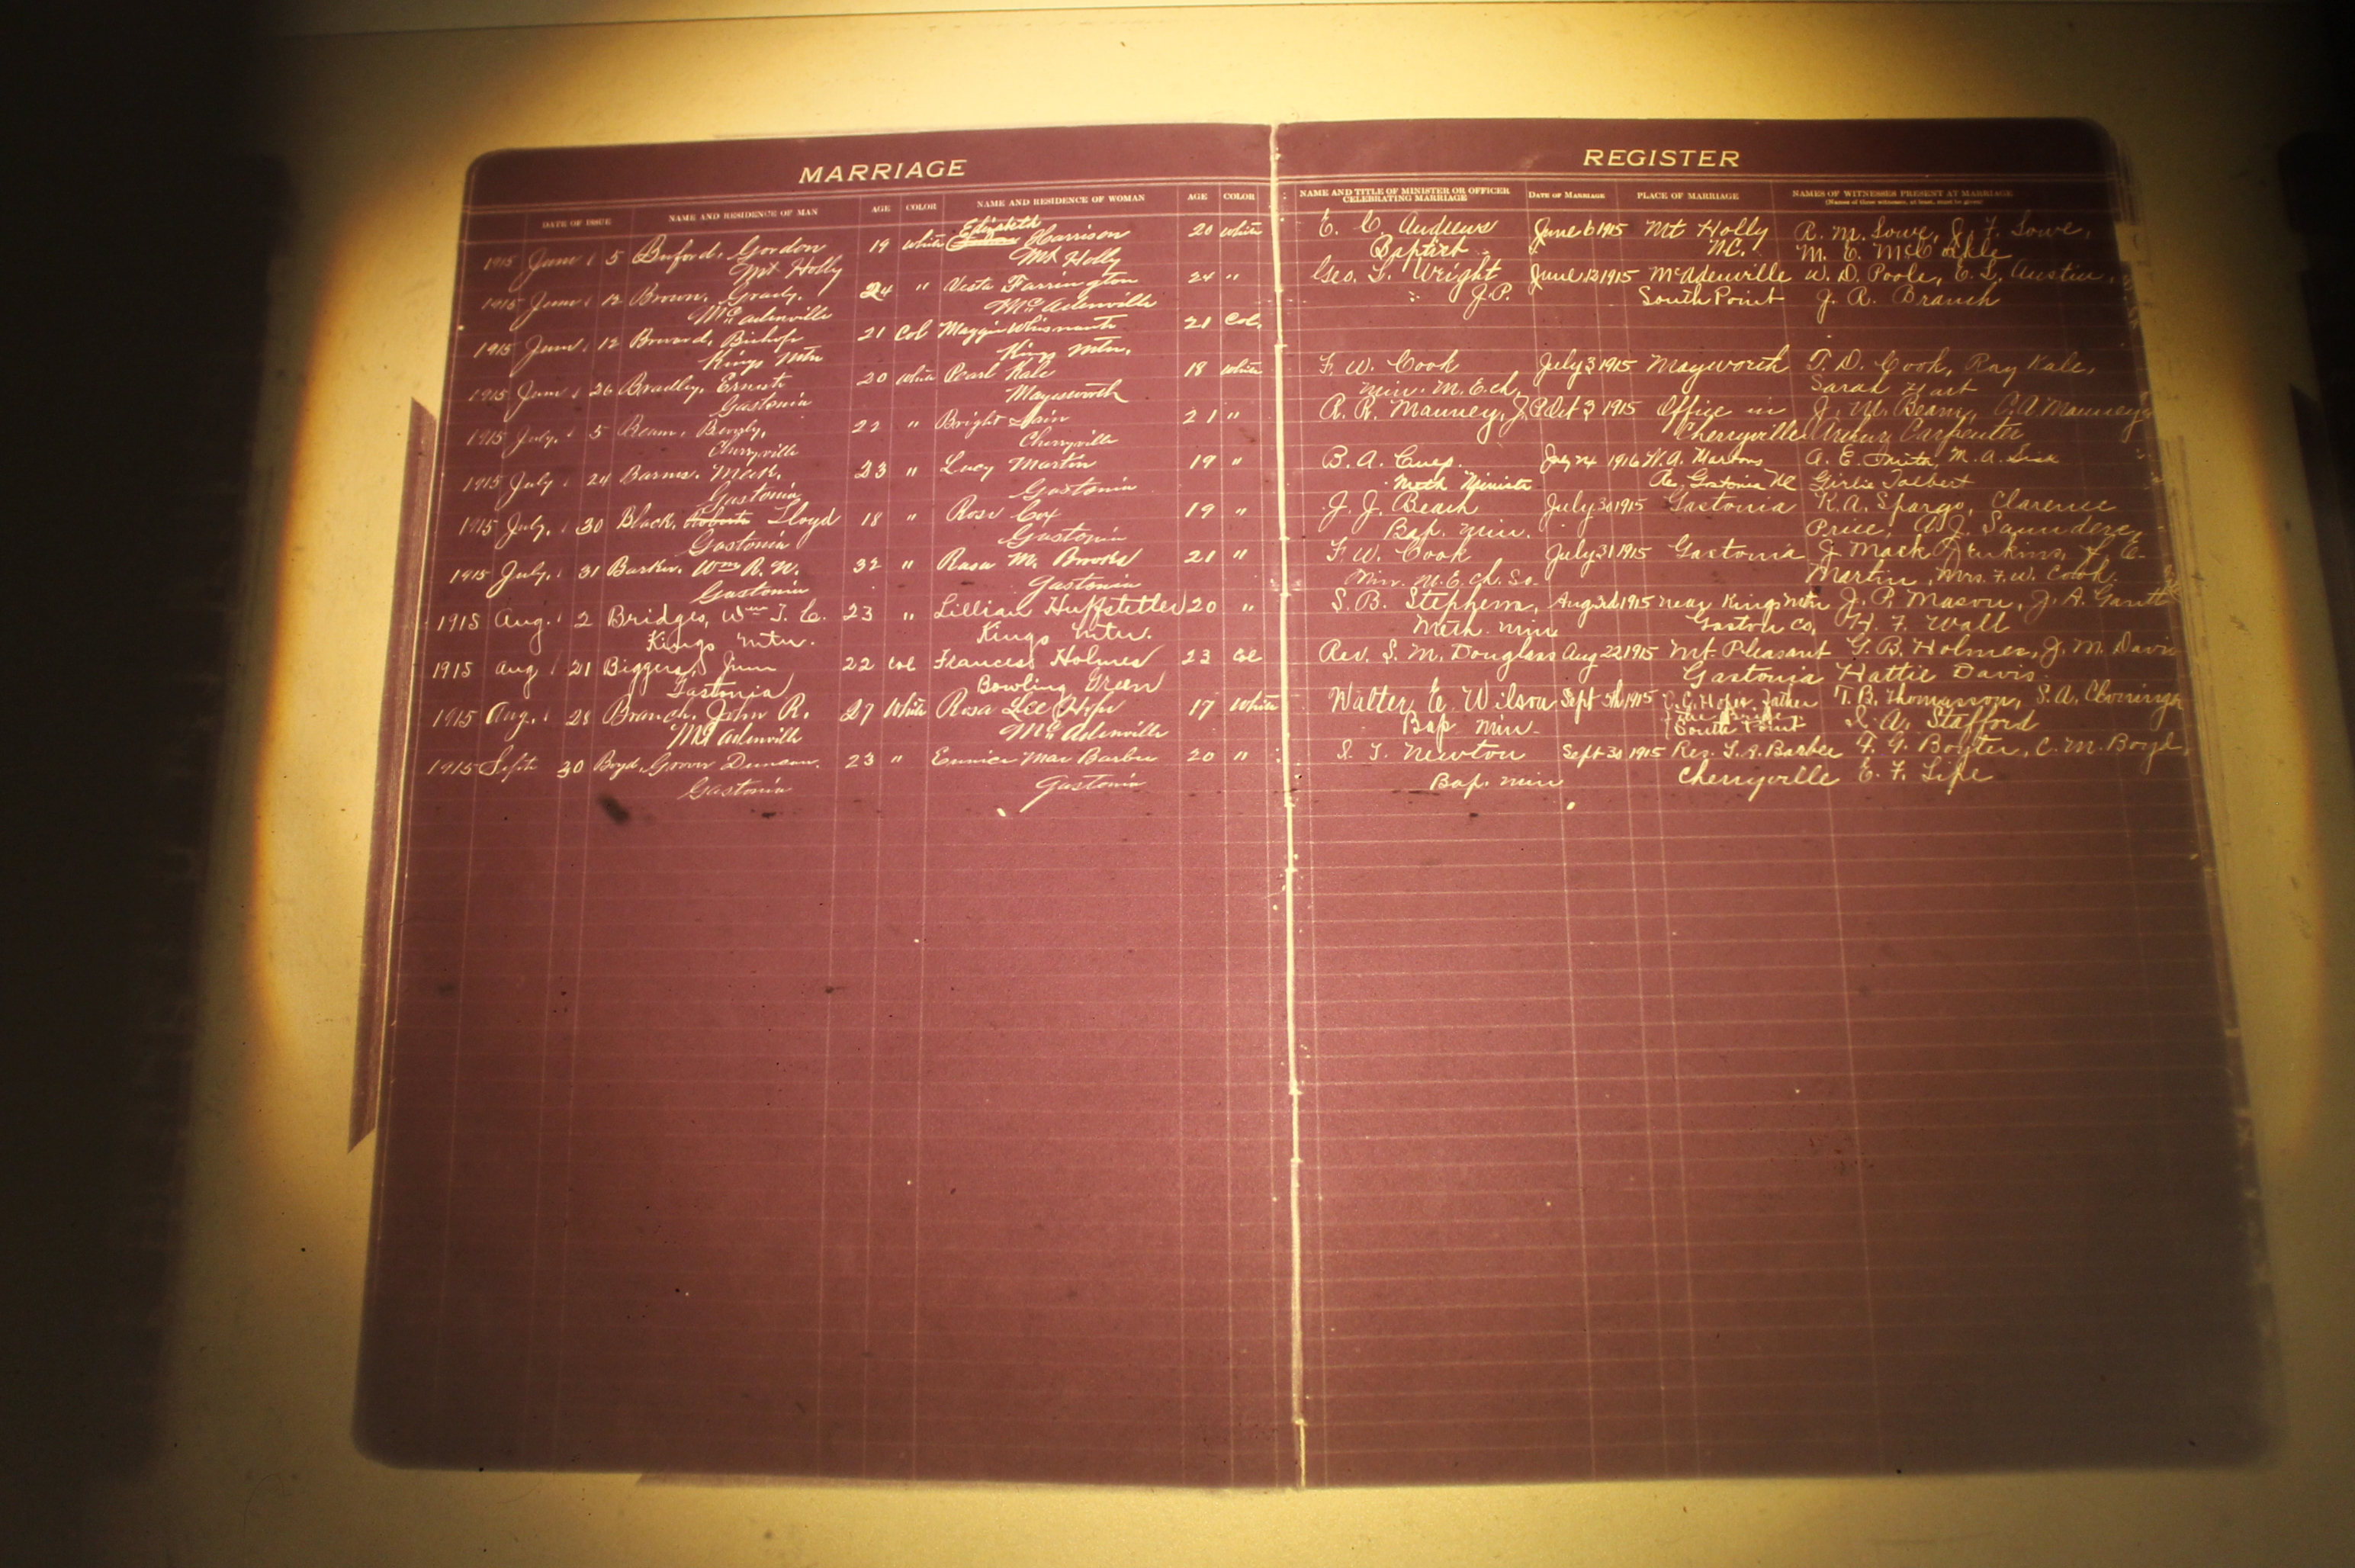 MARRIAGE
DATE OF ISSUE NAME AND RESIDENCE OF MAN AGE COLOR NAME AND RESIDENCE OF WOMAN AGE COLOR
Elizabeth
1915 June 5 Buford, Gordon 19 White Harrison 20 White
Mt Holly Mt Holly
1915 June 12 Brown, Grady, 24 " Vesta Farrington 24 "
McAdenville McAdenville
1915 June 12 Bishop 21 Col Maggie Whisnant 21 Col.
Kings Mtn Kings Mtn.
1915 June 26 Bradley, Ernest 20 White Pearl Kale 18 White
Gastonia Mayesworth
1915 July. 5 Beam, 22 " Bright 21 "
Cherryville Cherryville
1915 July 24 Mack. 23 " Lucy Martin 19 "
Gastonia Gastonia
1915 July. 30 Black, Lloyd 18 " Rosa Cox 19 "
Gastonia Gastonia
1915 July. 31 Barker. Wm R. N. 32 " Rosa M. Brooks 21 "
Gastonia Gastonia
1915 Aug. 2 Bridges, Wm T. C. 23 " Lillian Huffstetler 20 "
Kings Mtn. Kings Mtn.
1915 Aug 21 Biggers, Jim 22 Col Frances Holmes 23 Col
Gastonia Bowling Green
1915 Aug. 28 Branch, John R. 27 White Rosa Lee 17 White
McAdenville McAdenville
1915 Sept 30 Boyd, Grover Duncan. 23 " Eunice Mae Barber 20 "
Gastonia Gastonia
REGISTER
NAME AND TITLE OF MINISTER OR OFFICER CELEBRATING MARRIAGE DATE OF MARRIAGE PLACE OF MARRIAGE NAMES OF WITNESSES PRESENT AT MARRIAGE
(Names of three witnesses, at least, must be given)
E. C. Andrews June 6 1915 Mt Holly R. M. Lowe, J. F. Lowe,
Baptist N.C. M. E. McCorkle
Geo. L. Wright June 12 1915 McAdenville W. D. Poole, E. L. Austin,
J.P. South Point J. R. Branch
F. W. Cook July 3 1915 Mayworth T. D. Cook, Ray Kale,
Min. M. E. ch. Sarah Hart
R. R. Mauney, J.P. Oct 3 1915 Office in J. M. Beam, C. A. Mauney
Cherryville Arthur Carpenter
B. A. July 24 1916 A. E. Smith, M. A. Sisk
Meth Minister Gastonia NC Girlie Talbert
J. J. Beach July 30 1915 Gastonia K. A. Spargo, Clarence
Bap. Min. Price, A. J. Saunders
F. W. Cook July 31 1915 Gastonia J. Mack Jenkins, F. C.
Min. M. E. ch. So. Martin, Mrs. F. W. Cook.
S. B. Stephens, Aug 3d 1915 near Kings Mtn J. P. Mason, J. A. Gantt
Meth. Min Gaston Co, H. F. Wall
Rev. S. M. Douglass Aug 22 1915 Mt Pleasant G. B. Holmes, J. M. Davis
Gastonia Hattie Davis.
Walter E. Wilson Sept 5th 1915 Father T. B. Thomasson, S. A.
Bap Min. South Point S. A. Stafford
Newton Sept 30 1915 Res. L. R. Barber F. G. Boyter, C. M. Boyd,
Bap. Min Cherryville E. F.